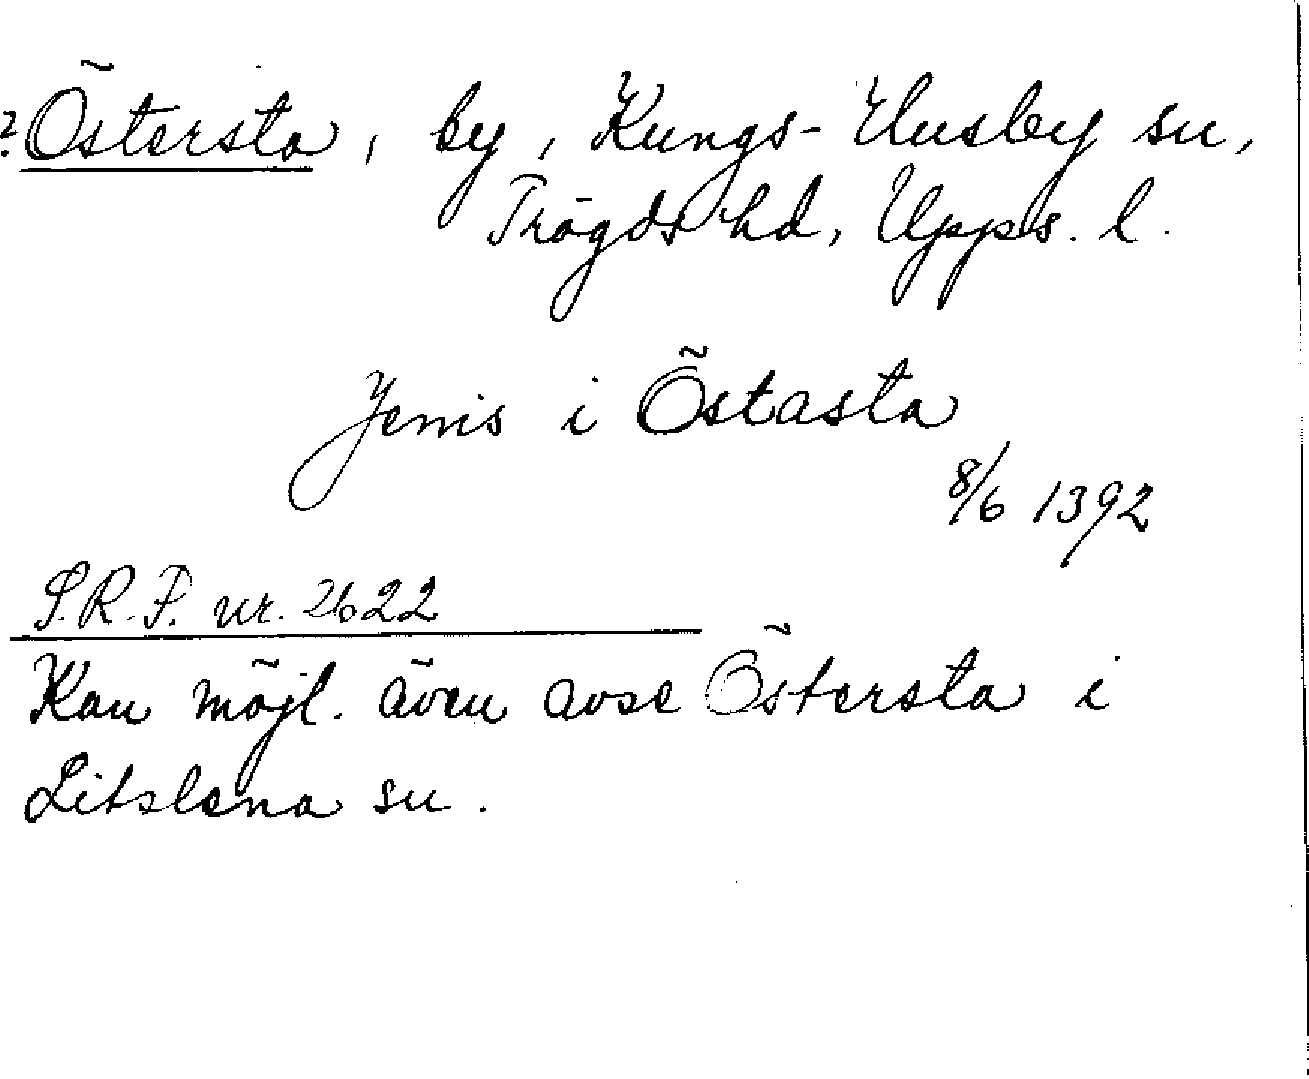 ? Östersta, by, Kungs-Husby sn,
Trögds hd, Upps. l.
Jenis i Östasta
8/6 1392
S.R.P. nr. 2622
Kan möjl. även avse Östersta i
Litslena sn.